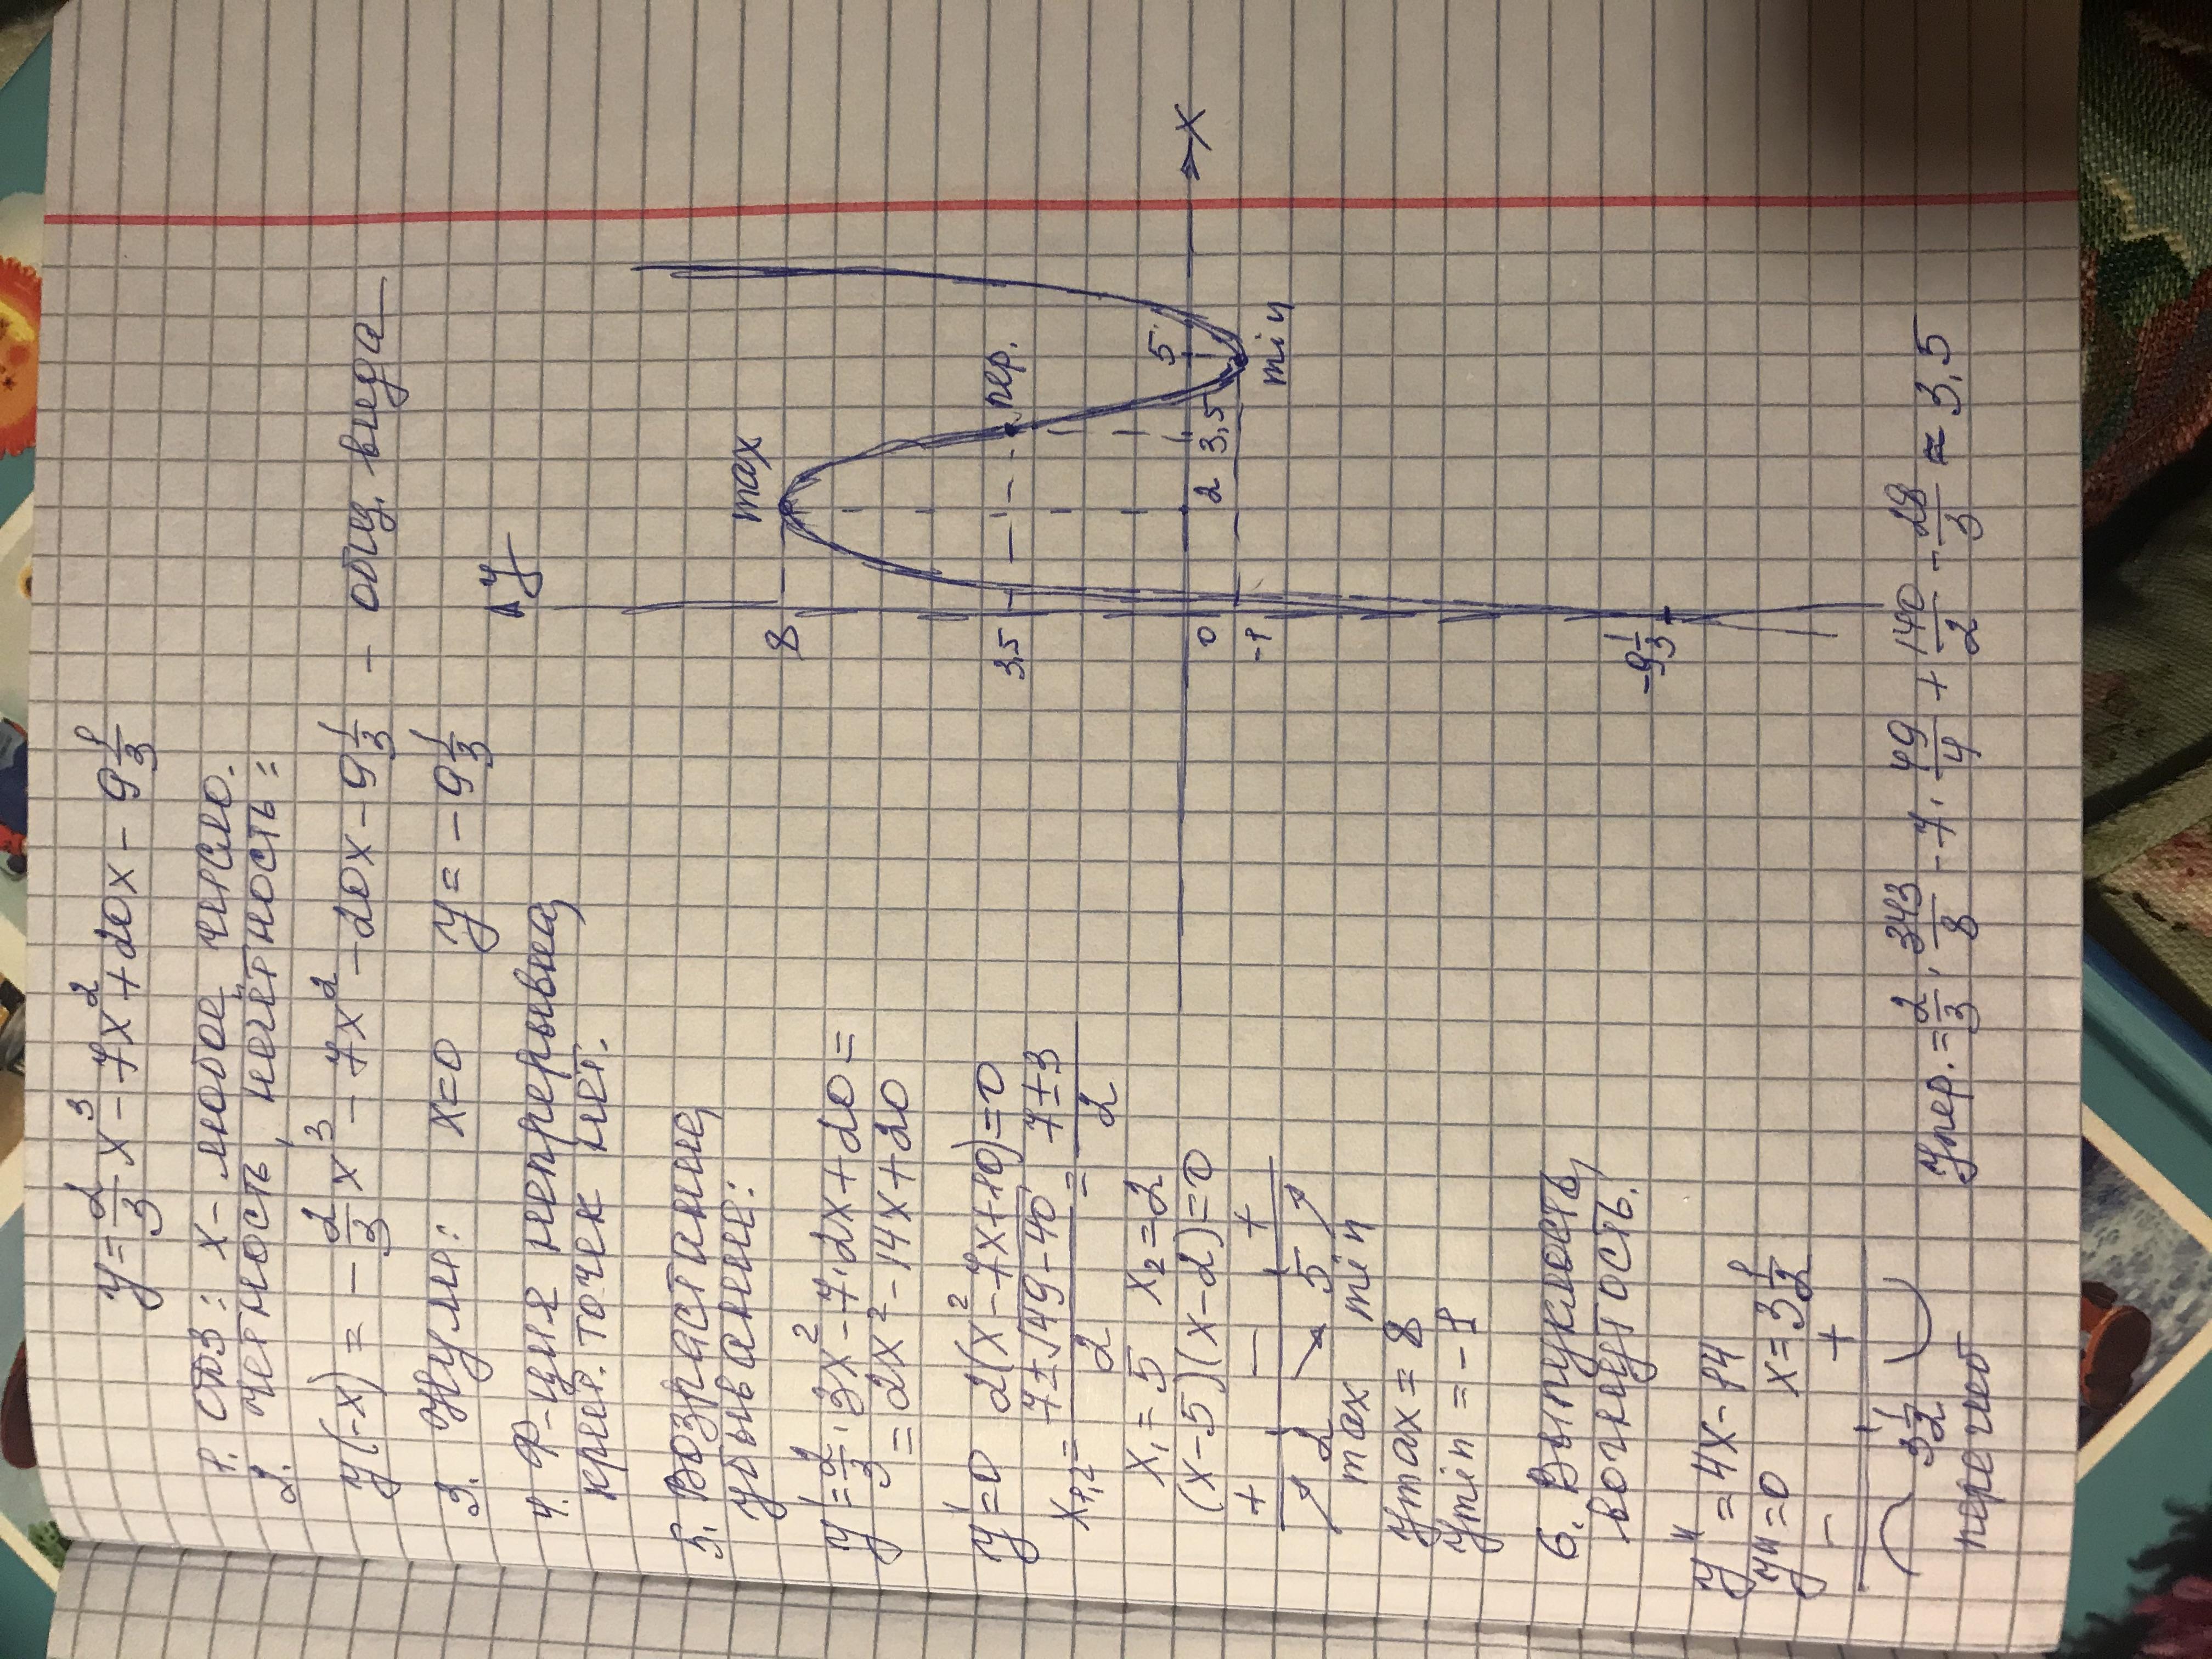 y = 2/3 x³ - 7x² + 20x - 9 1/3
1. ООЗ: x - любое число.
2. чётность, нечётность:
y(-x) = - 2/3 x³ - 7x² - 20x - 9 1/3 - общ. вида
3. Нули: x=0 y = -9 1/3
4. Ф-ция непрерывна,
крит. точек нет.
5. Возрастание,
убывание:
y' = 2/3 · 3x² - 7·2x + 20 =
= 2x² - 14x + 20
y' = 0 2(x² - 7x + 10) = 0
x1,2 = (7 ± √49-40)/2 = (7±3)/2
x₁ = 5 x₂ = 2
(x-5)(x-2) = 0
+ - +
2 5
max min
ymax = 8
ymin = -1
6. Выпуклость,
вогнутость.
y'' = 4x - 14
y'' = 0 x = 3 1/2
- +
3 1/2
перегиб
yпер. = 2/3 · 343/8 - 7 · 49/4 + 140/2 - 28/3 ≈ 3,5
y
max
8
3,5
пер.
0
2
3,5
5
x
-1
min
-9 1/3